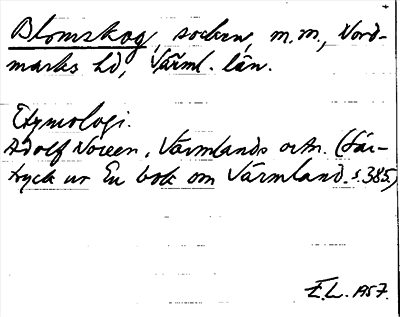 Blomskog, socken, m.m., Nord-
marks hd, Värml. län.
Etymologi.
Adolf Noreen, Värmlands ortn. (Sär-
tryck ur En bok om Värmland s.385)
E.L. 1957.